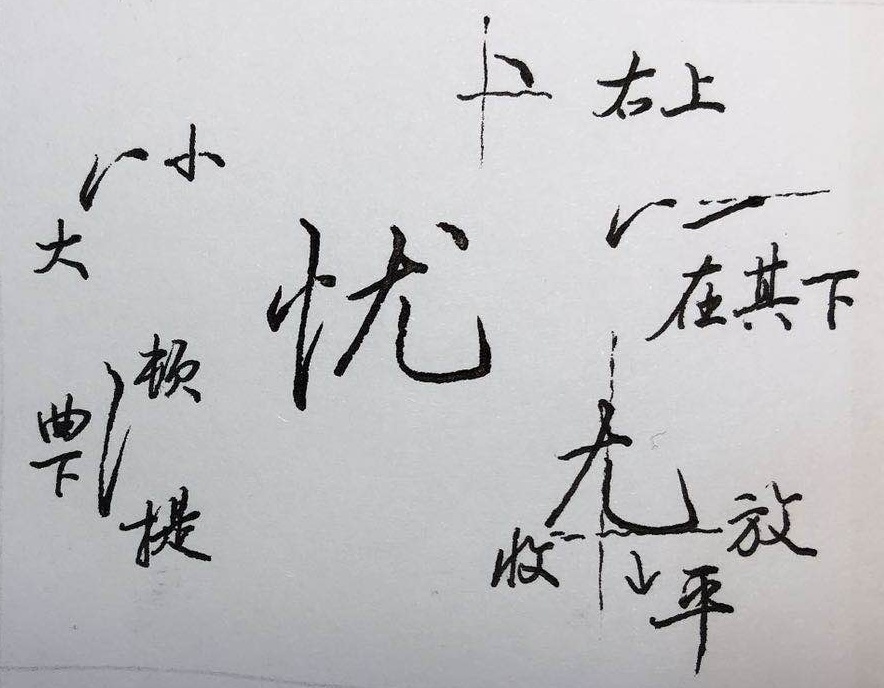 右上
小
大
忧
在其下
顿
曲下
提
收
放
平